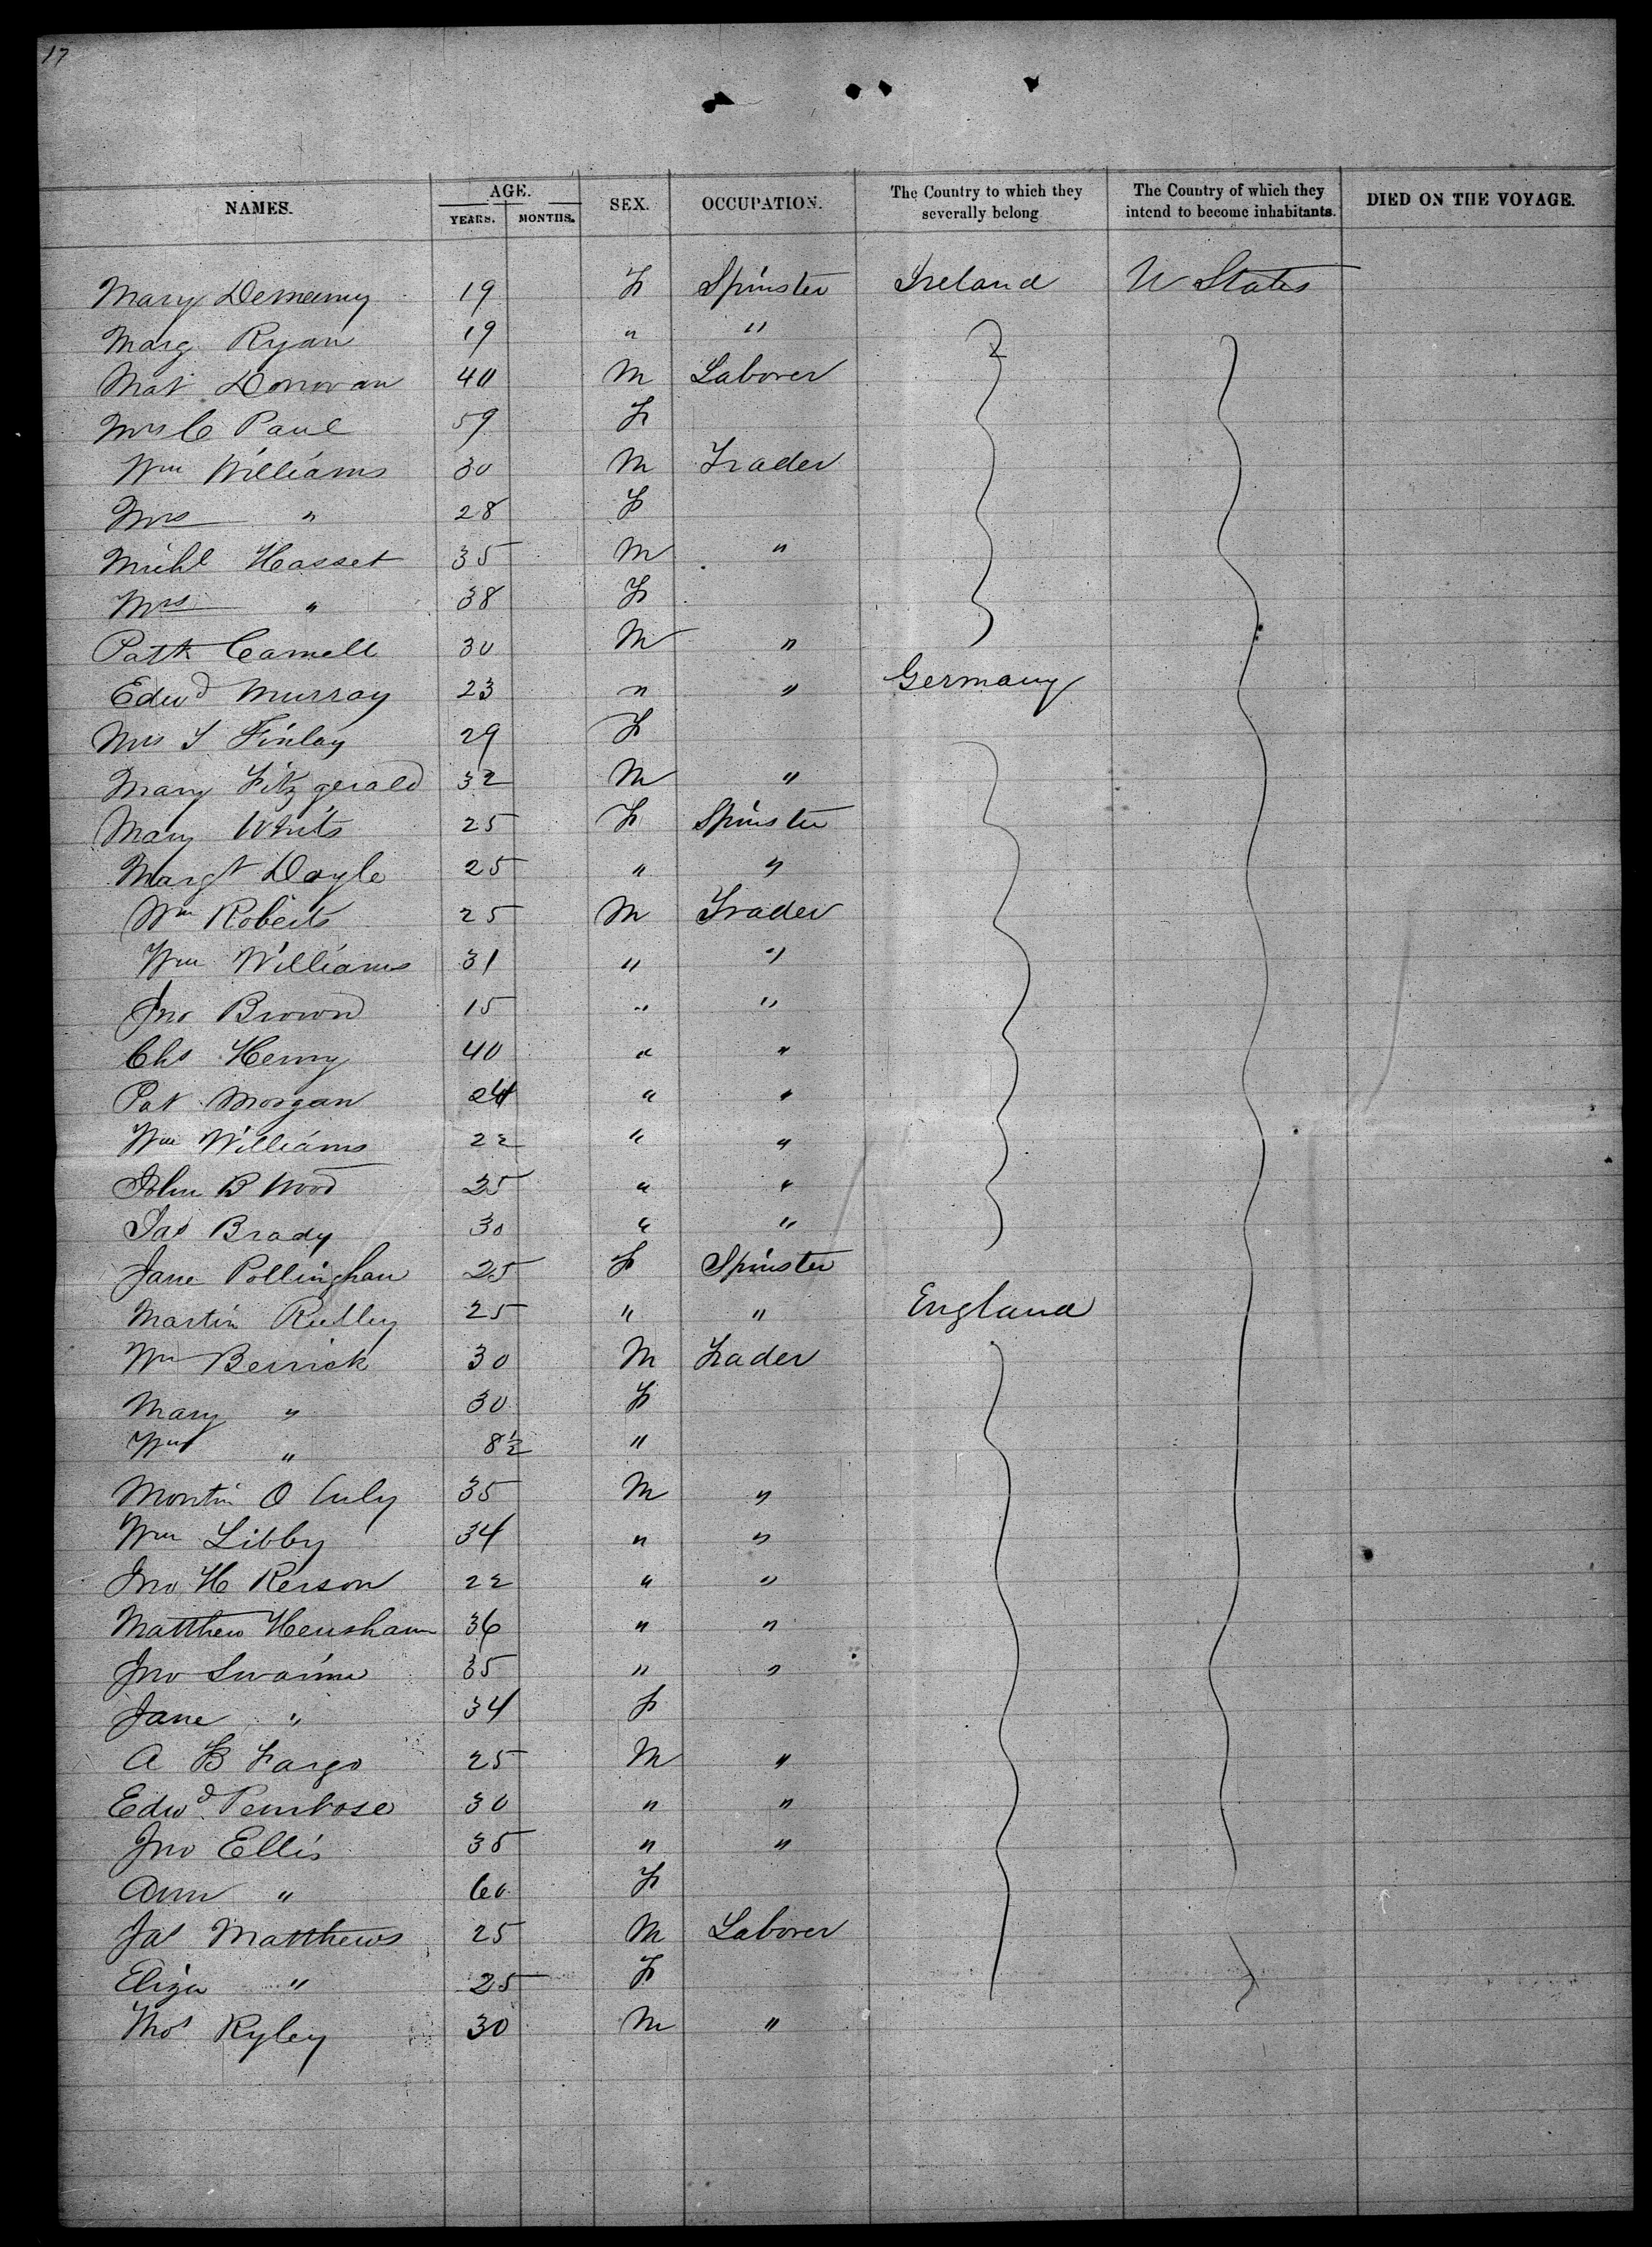 17
NAMES. AGE. YEARS. MONTHS. SEX. OCCUPATION. The Country to which they severally belong The Country of which they intend to become inhabitants. DIED ON THE VOYAGE.
Mary 19 F Spinster Ireland U States
Marg Ryan 19 " "
Mat Donovan 40 M Laborer
Mrs C Paul 59 F
Wm Williams 30 M Trader
Mrs " 28 F
Michl Hasset 35 M "
Mrs " 38 F
Patk 30 M "
Edwd Murray 23 " " Germany
Mrs Finlay 29 F
Mary Fitzgerald 32 M "
Mary White 25 F Spinster
Margt Doyle 25 " "
Wm Roberts 25 M Trader
Wm Williams 31 " "
Jno Brown 15 " "
Chs Henry 40 " "
Pat Morgan 24 " "
Wm Williams 22 " "
John B Wood 25 " "
Jas Brady 30 " "
Jane Pollinghan 25 F Spinster
Martin 25 " " England
Wm Berrick 30 M Trader
Mary " 30 F
Wm " 8½ "
Martin O 35 M "
Wm Libby 34 " "
Jno H Rerson 22 " "
Matthew 36 " "
Jno Swaine 35 " "
Jane " 34 F
A B Fargo 25 M "
Edwd Penrose 30 " "
Jno Ellis 35 " "
Ann " 60 F
Jas Matthews 25 M Laborer
Eliza " 25 F
Thos Ryley 30 M "